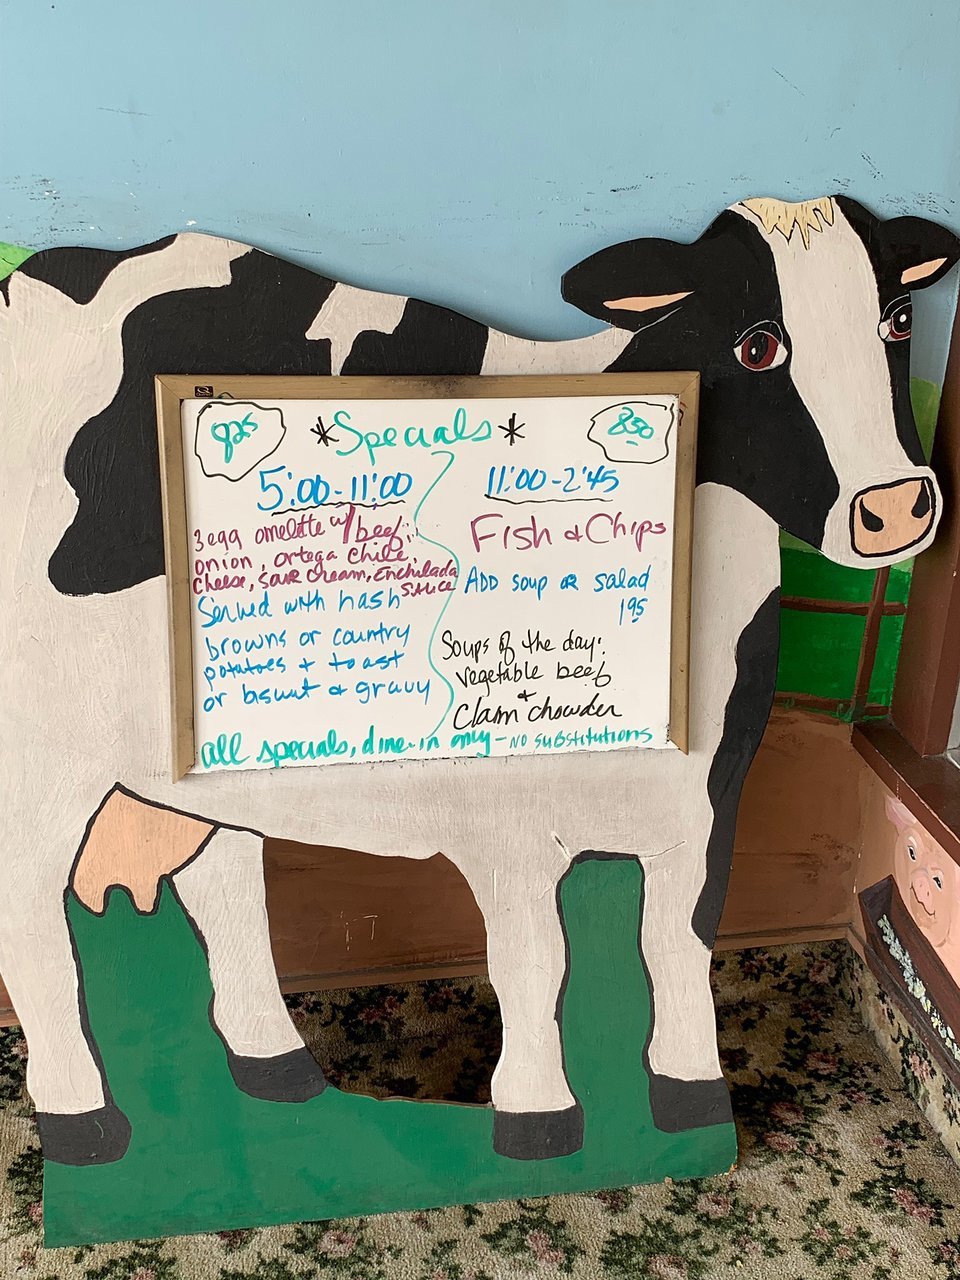 825
*Specials*
850
5:00-11:00
3 egg omelette w/ beef,
onion, ortega chile,
cheese, sour cream, Enchilada
sauce
Served with hash
browns or country
potatoes + toast
or biscuit & gravy
11:00-2:45
Fish & Chips
Add soup or salad
195
Soups of the day:
vegetable beef
+
Clam chowder
all specials, dine-in only - NO SUBSTITUTIONS